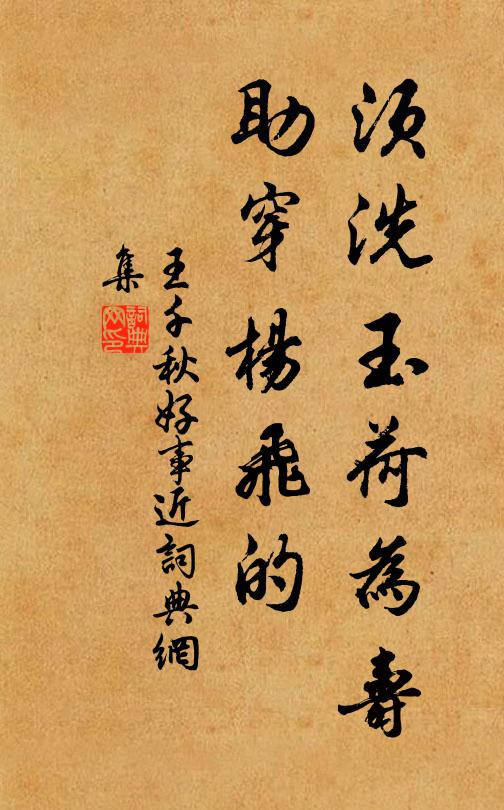 须洗玉荷為壽
助穿楊飛的
王千秋好事近詞典網
集
詞典
网印